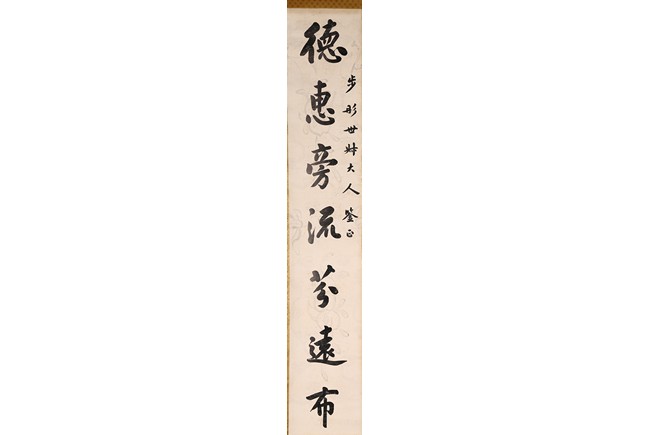 步彤世姊大人鉴正
德惠旁流芬遠布